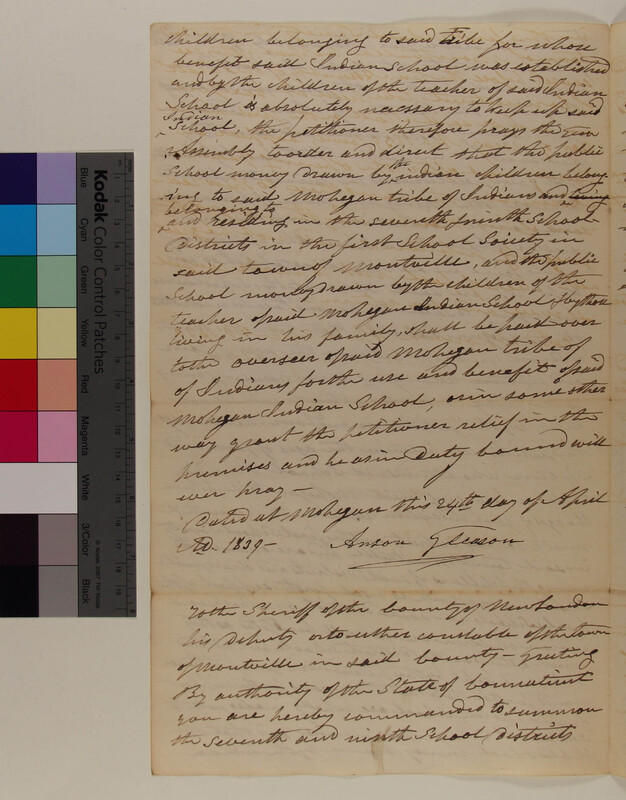 children belonging to said Tribe for whose
benefit said Indian School was established
and by the children of the teacher of said Indian
School is absolutely necessary to keep up said
Indian
School, the petitioner therefore prays the Gen
Assembly to order and direct that the public
School money drawn by the indian children belong
ing to said Mohegan tribe of Indians and living
belonging to
and residing in the seventh & ninth School
Districts in the first School Society in
said town of Montville, and the public
School money drawn by the children of the
teacher of said Mohegan Indian School & by those
living in his family, shall be paid over
to the overseer of said Mohegan tribe of
of Indians for the use and benefit of said
Mohegan Indian School, or in some other
way grant the petitioner relief in the
premises and he as in Duty bound will
ever pray —
Dated at Mohegan this 24th day of April
AD. 1839 — Anson Gleason
To the Sheriff of the County of New London
his Deputy or to either constable of the town
of Montville in said County — Greeting
By authority of the State of Connecticut
you are hereby commanded to summon
the seventh and ninth School Districts
Kodak Color Control Patches
Blue
Cyan
Green
Yellow
Red
Magenta
White
3/Color
Black